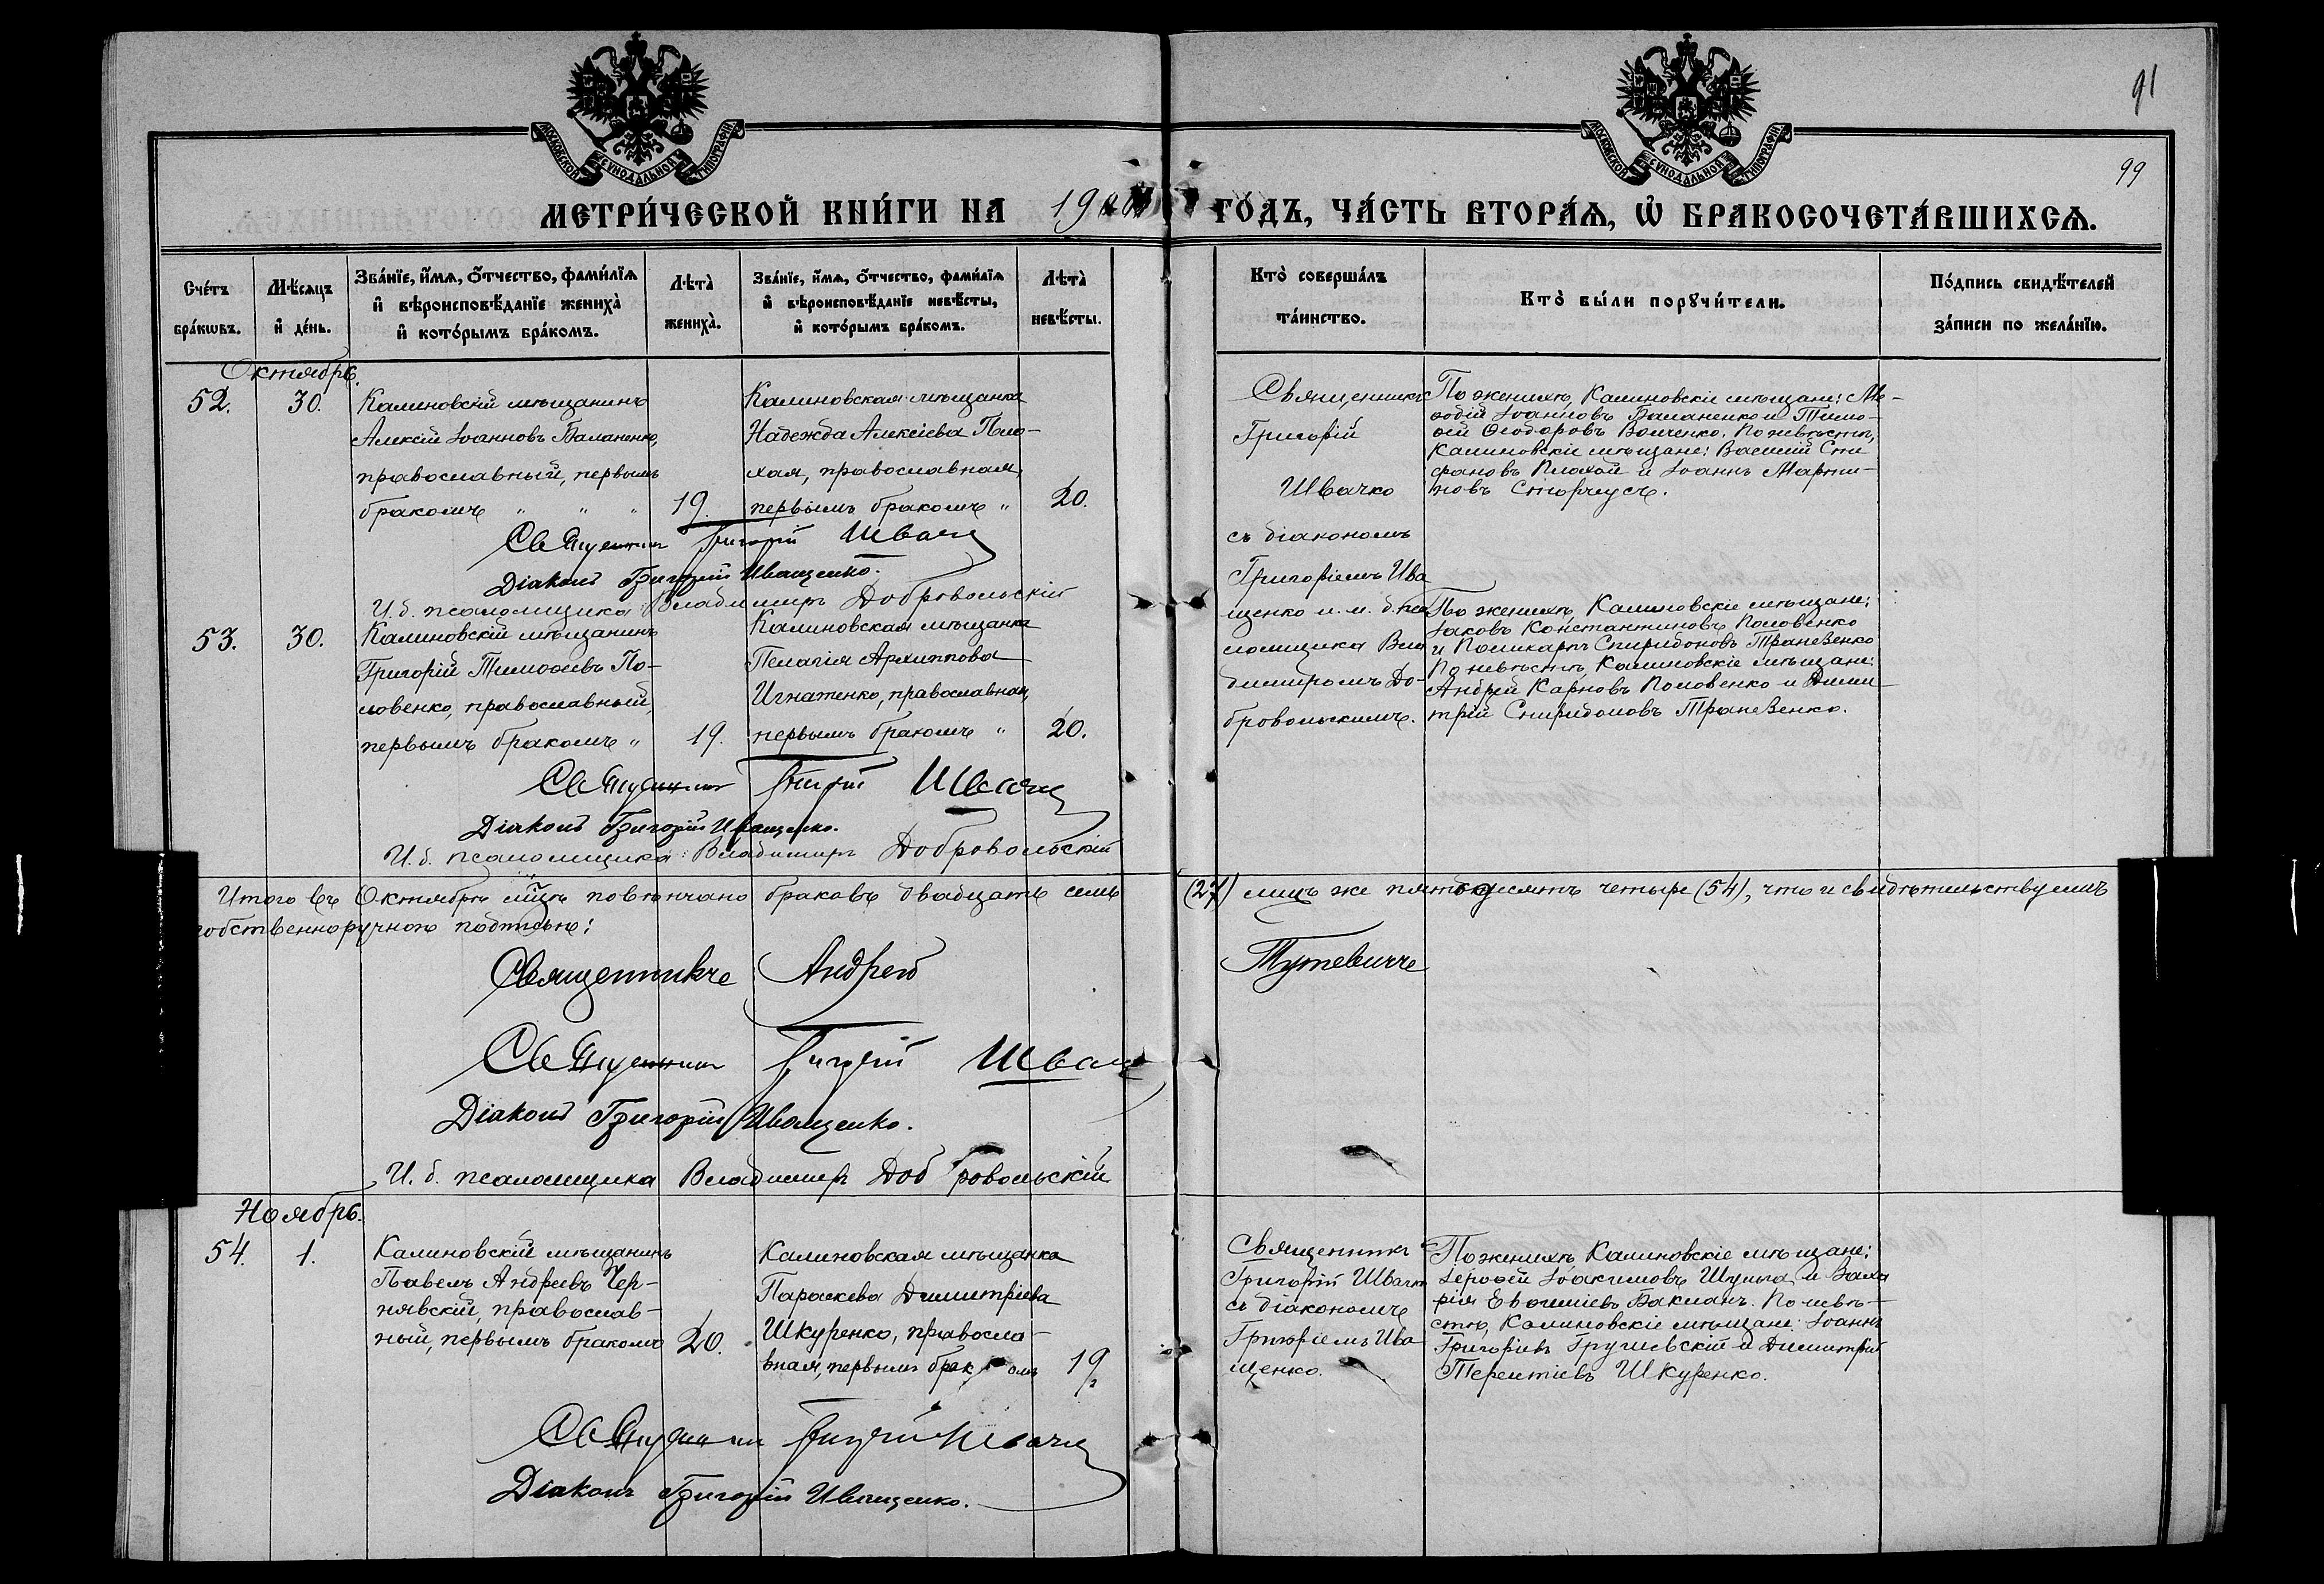 91
99
МОСКОВСКОЙ СѴНОДАЛЬНОЙ ТИПОГРАФІИ
МОСКОВСКОЙ СѴНОДАЛЬНОЙ ТИПОГРАФІИ
МЕТРИ́ЧЕСКОЙ КНИ́ГИ НА 19
ГО́ДЪ, ЧА́СТЬ ВТОРА́Ѧ, Ѡ҆ БРАКОСОЧЕТА́ВШИХСѦ.
Сче́тъ бра́кѡвъ.
Мѣ́сяцъ и҆ де́нь.
Зва́нїе, и҆́мѧ, ѻ҆́тчество, фами́лїѧ
и҆ вѣроисповѣ́данїе жениха̀
и҆ кото́рымъ бра́комъ.
Лѣ́та̀ жениха̀.
Зва́нїе, и҆́мѧ, ѻ҆́тчество, фами́лїѧ
и҆ вѣроисповѣ́данїе невѣ́сты,
и҆ кото́рымъ бра́комъ.
Лѣ́та̀ невѣ́сты.
Кто̀ соверша́лъ
та́инство.
Кто̀ бы́ли порꙋчи́тели.
По́дпись свидѣ́телей
за́писи по жела́нїю.
Октябрь.
52.
30.
Калиновскій мѣщанинъ
Алексій Іоанновъ Баланенко,
православный, первымъ
бракомъ " " "
19.
Калиновская мѣщанка
Надежда Алексіева Пло-
хая, православная,
первымъ бракомъ "
20.
Священникъ
Григорій
Швачко
съ діакономъ
Григоріемъ Ива
щенко и. м. б. пса
ломщика Вла
диміромъ До-
бровольскимъ.
По женихѣ, Калиновскіе мѣщане: Ме-
ѳодій Іоанновъ Баланенко и Тимо-
ѳей Ѳеодоровъ Волченко. По невѣстѣ,
Калиновскіе мѣщане: Василій Сте
фановъ Плохой и Іоаннъ Марти-
новъ
Священникъ Григорій Швачко
Діаконъ Григорій Иващенко.
И. б. псаломщика: Владиміръ Добровольскій
53.
30.
Калиновскій мѣщанинъ
Григорій Тимоѳеевъ По-
ловенко, православный,
первымъ бракомъ "
19.
Калиновская мѣщанка
Пелагія Архиппова
Игнатенко, православная,
первымъ бракомъ "
20.
По женихѣ, Калиновскіе мѣщане:
Іаковъ Константиновъ Половенко
и Поликарпъ Спиридоновъ Трапезенко
По невѣстѣ, Калиновскіе мѣщане:
Андрей Карповъ Половенко и Дими-
трій Спиридоновъ Трапезенко.
Священникъ Григорій Швачко
Діаконъ Григорій Иващенко.
И. б. псаломщика: Владиміръ Добровольскій
Итого въ Октябрѣ мцѣ повѣнчано браковъ двадцать семь (27) лицъ же пятьдесятъ четыре (54), что и свидѣтельствуемъ
собственноручною подписью:
Священникъ Андрей Тутевичъ
Священникъ Григорій Швачко
Діаконъ Григорій Иващенко.
И. б. псаломщика Владиміръ Добровольскій
Ноябрь.
54.
1.
Калиновскій мѣщанинъ
Павелъ Андреевъ Чер-
нявскій, православ-
ный, первымъ бракомъ
20.
Калиновская мѣщанка
Параскева Димитріева
Шкуренко, правосла-
вная, первымъ бракомъ
19
Священникъ
Григорій Швачко
съ діакономъ
Григоріемъ Ива
щенко.
По женихѣ Калиновскіе мѣщане:
Іероѳей Іоакимовъ Шульга и Заха
рія Евѳиміевъ Бакланъ. По невѣ-
стѣ, Калиновскіе мѣщане: Іоаннъ
Григоріевъ Грушевскій и Димитрій
Терентіевъ Шкуренко.
Священникъ Григорій Швачко
Діаконъ Григорій Иващенко.